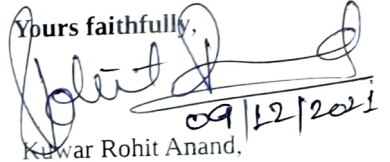 Yours faithfully,
Rohit Anand
09/12/2021
Kuwar Rohit Anand,